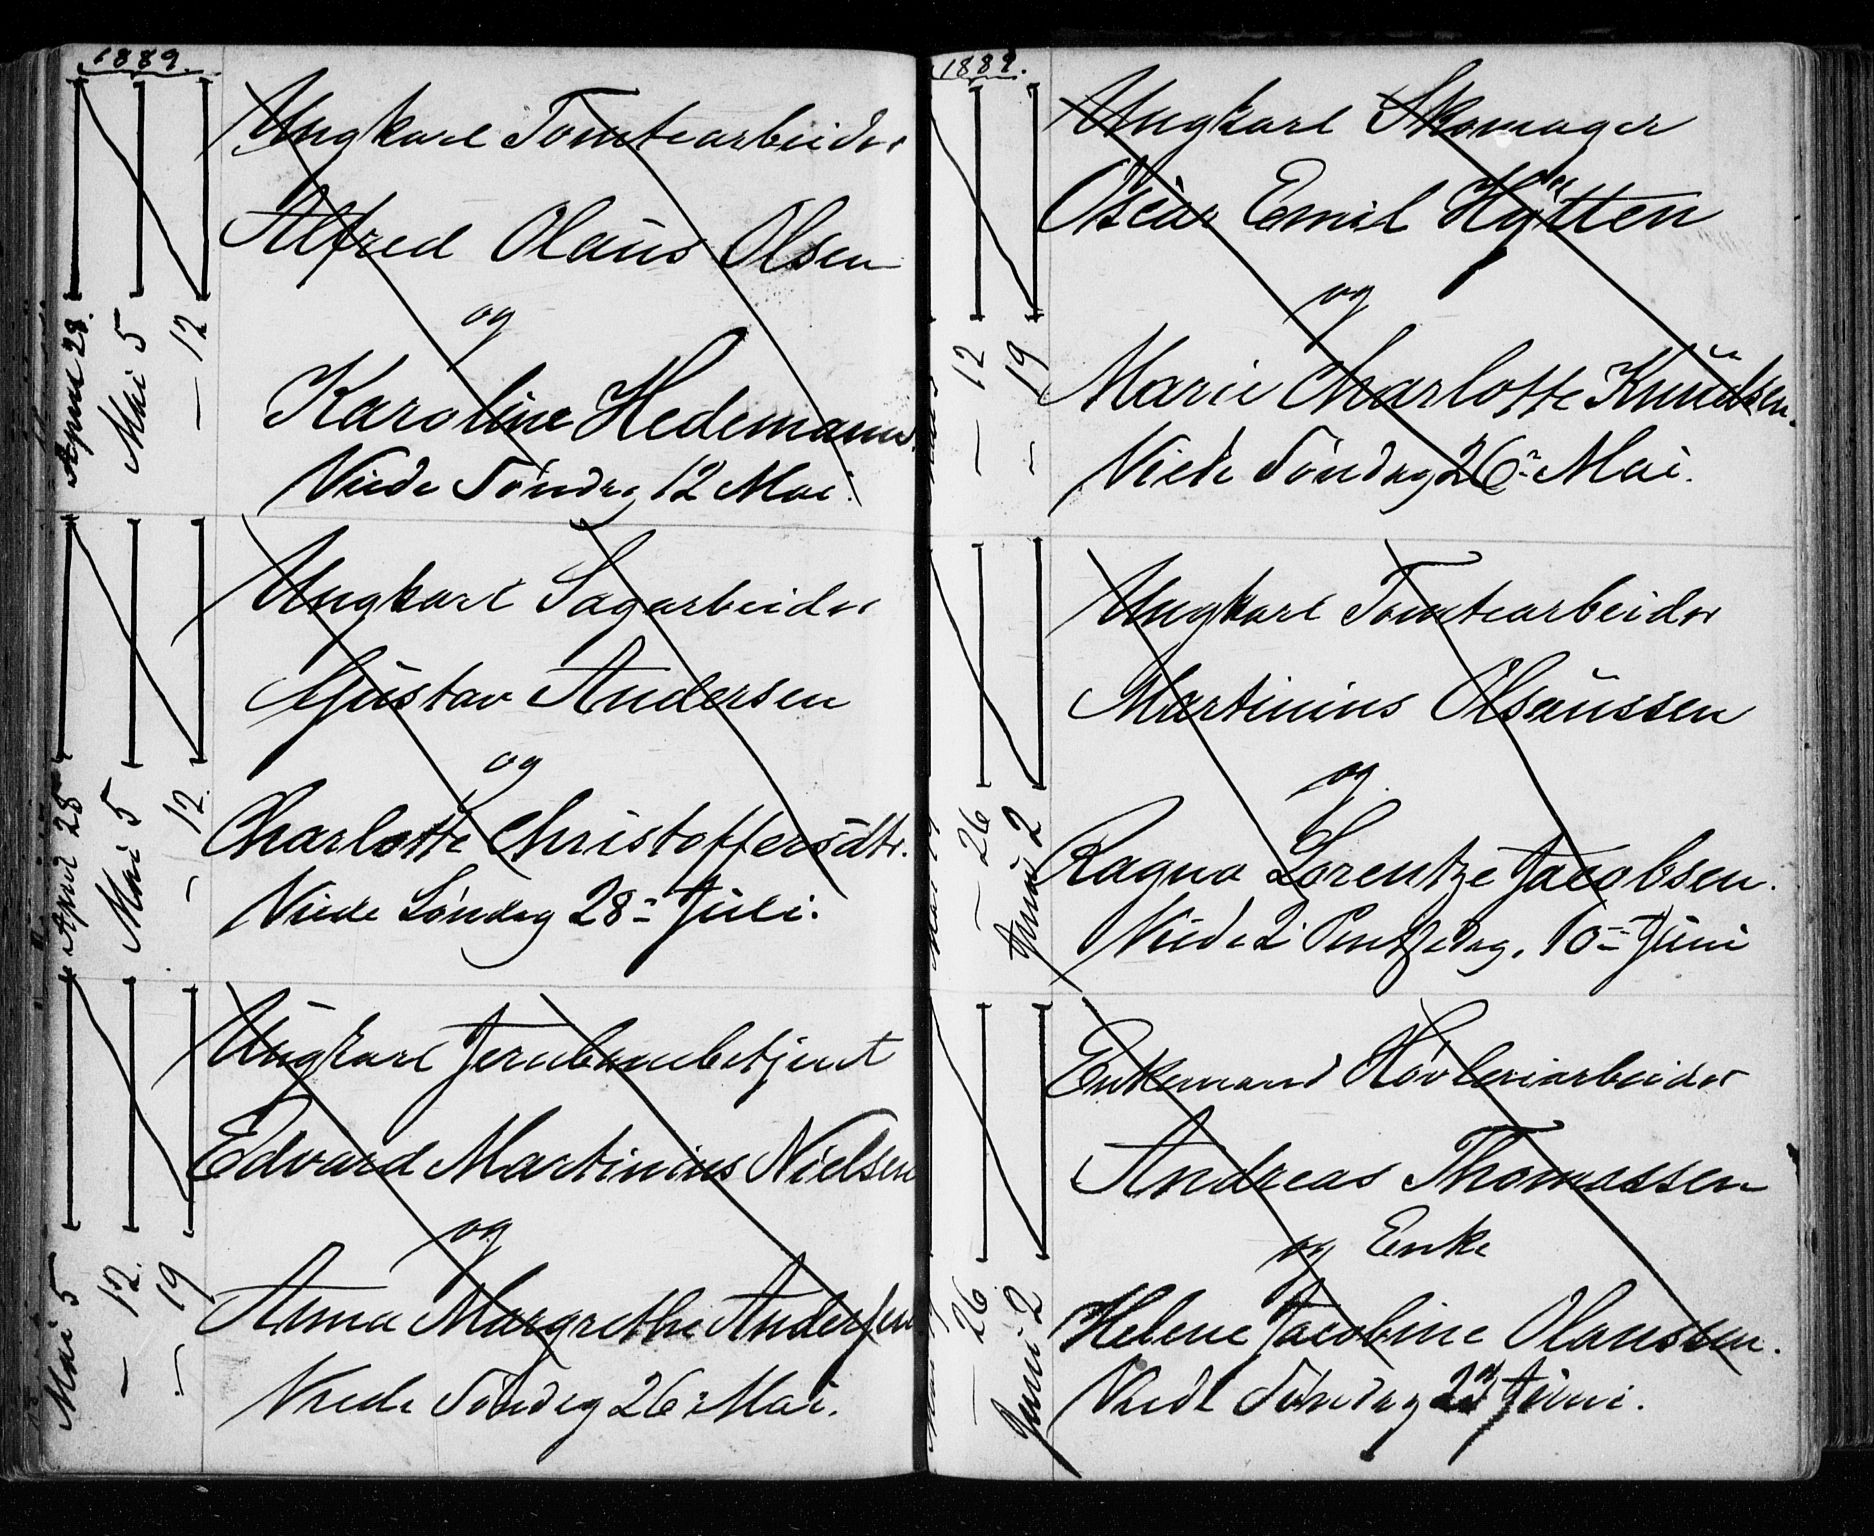 1889.
April 28.
Mai 5
— 12
Ungkarl Tomtearbeider
Alfred Olaus Olsen
og
Karoline Hedemann.
Viede Søndag 12 Mai.
April 28
Mai 5
— 12.
Ungkarl Sagarbeider
Gustav Andersen
og
Charlotte Christoffersdtr.
Viede Søndag 28de Juli.
Mai 5
— 12.
— 19
Ungkarl Jernbanebetjent
Edvard Martinius Nielsen
og
Anna Margrethe Andersen
Viede Søndag 26 Mai.
1889.
— 12
— 19
Ungkarl Skomager
Oscar Emil Hytten
og
Marie Charlotte Knudsen.
Viede Søndag 26 Mai.
— 26
Juni 2
Ungkarl Tomtearbeider
Martinius Olsaussen
og
Ragna Lorentze Jacobsen.
Viede 2 Pintsedag, 10de Juni
— 26
Juni 2
Enkemand Høvleriarbeider
Andreas Thomassen
og Enke
Helene Jacobine Olaussen.
Viede Søndag Juni.